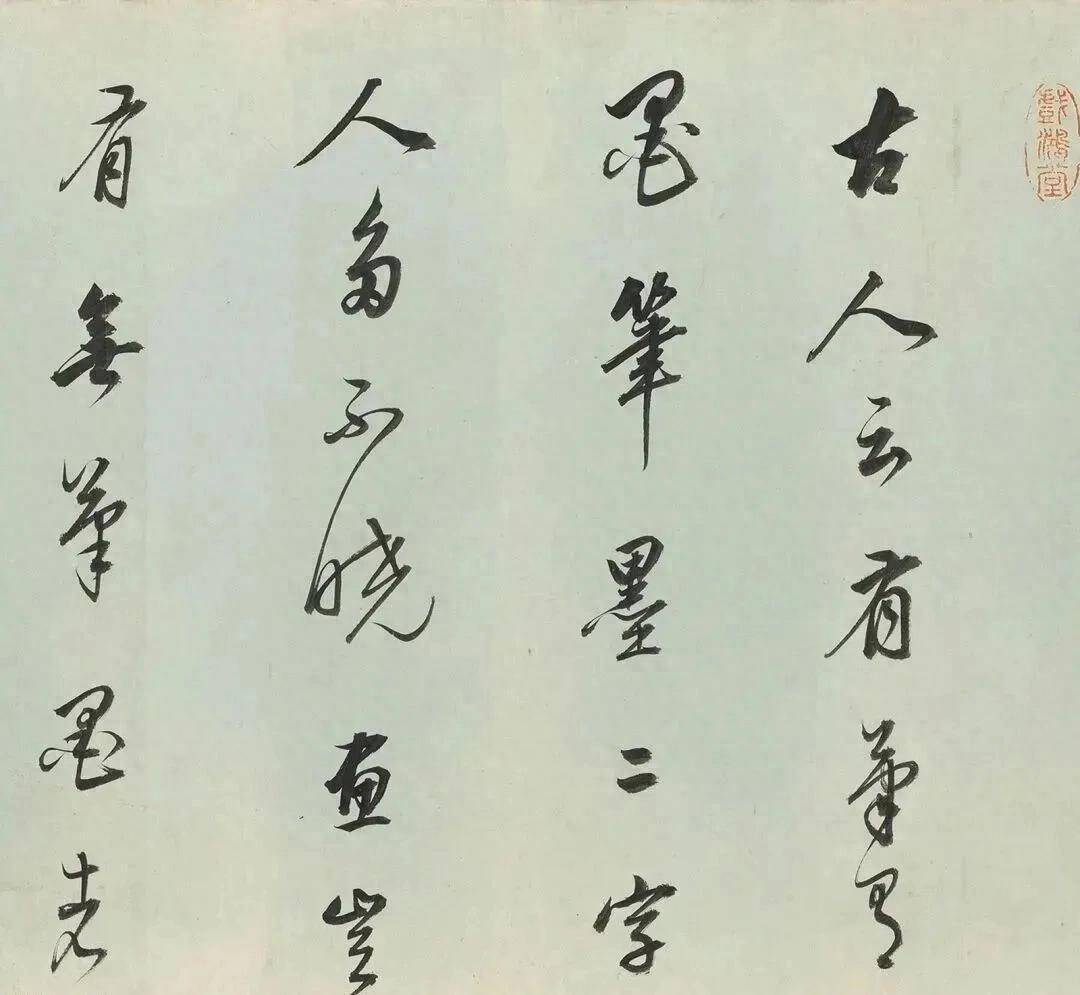 戲鴻堂
古人云有筆有
墨筆墨二字
人多不曉畫豈
有無筆墨者